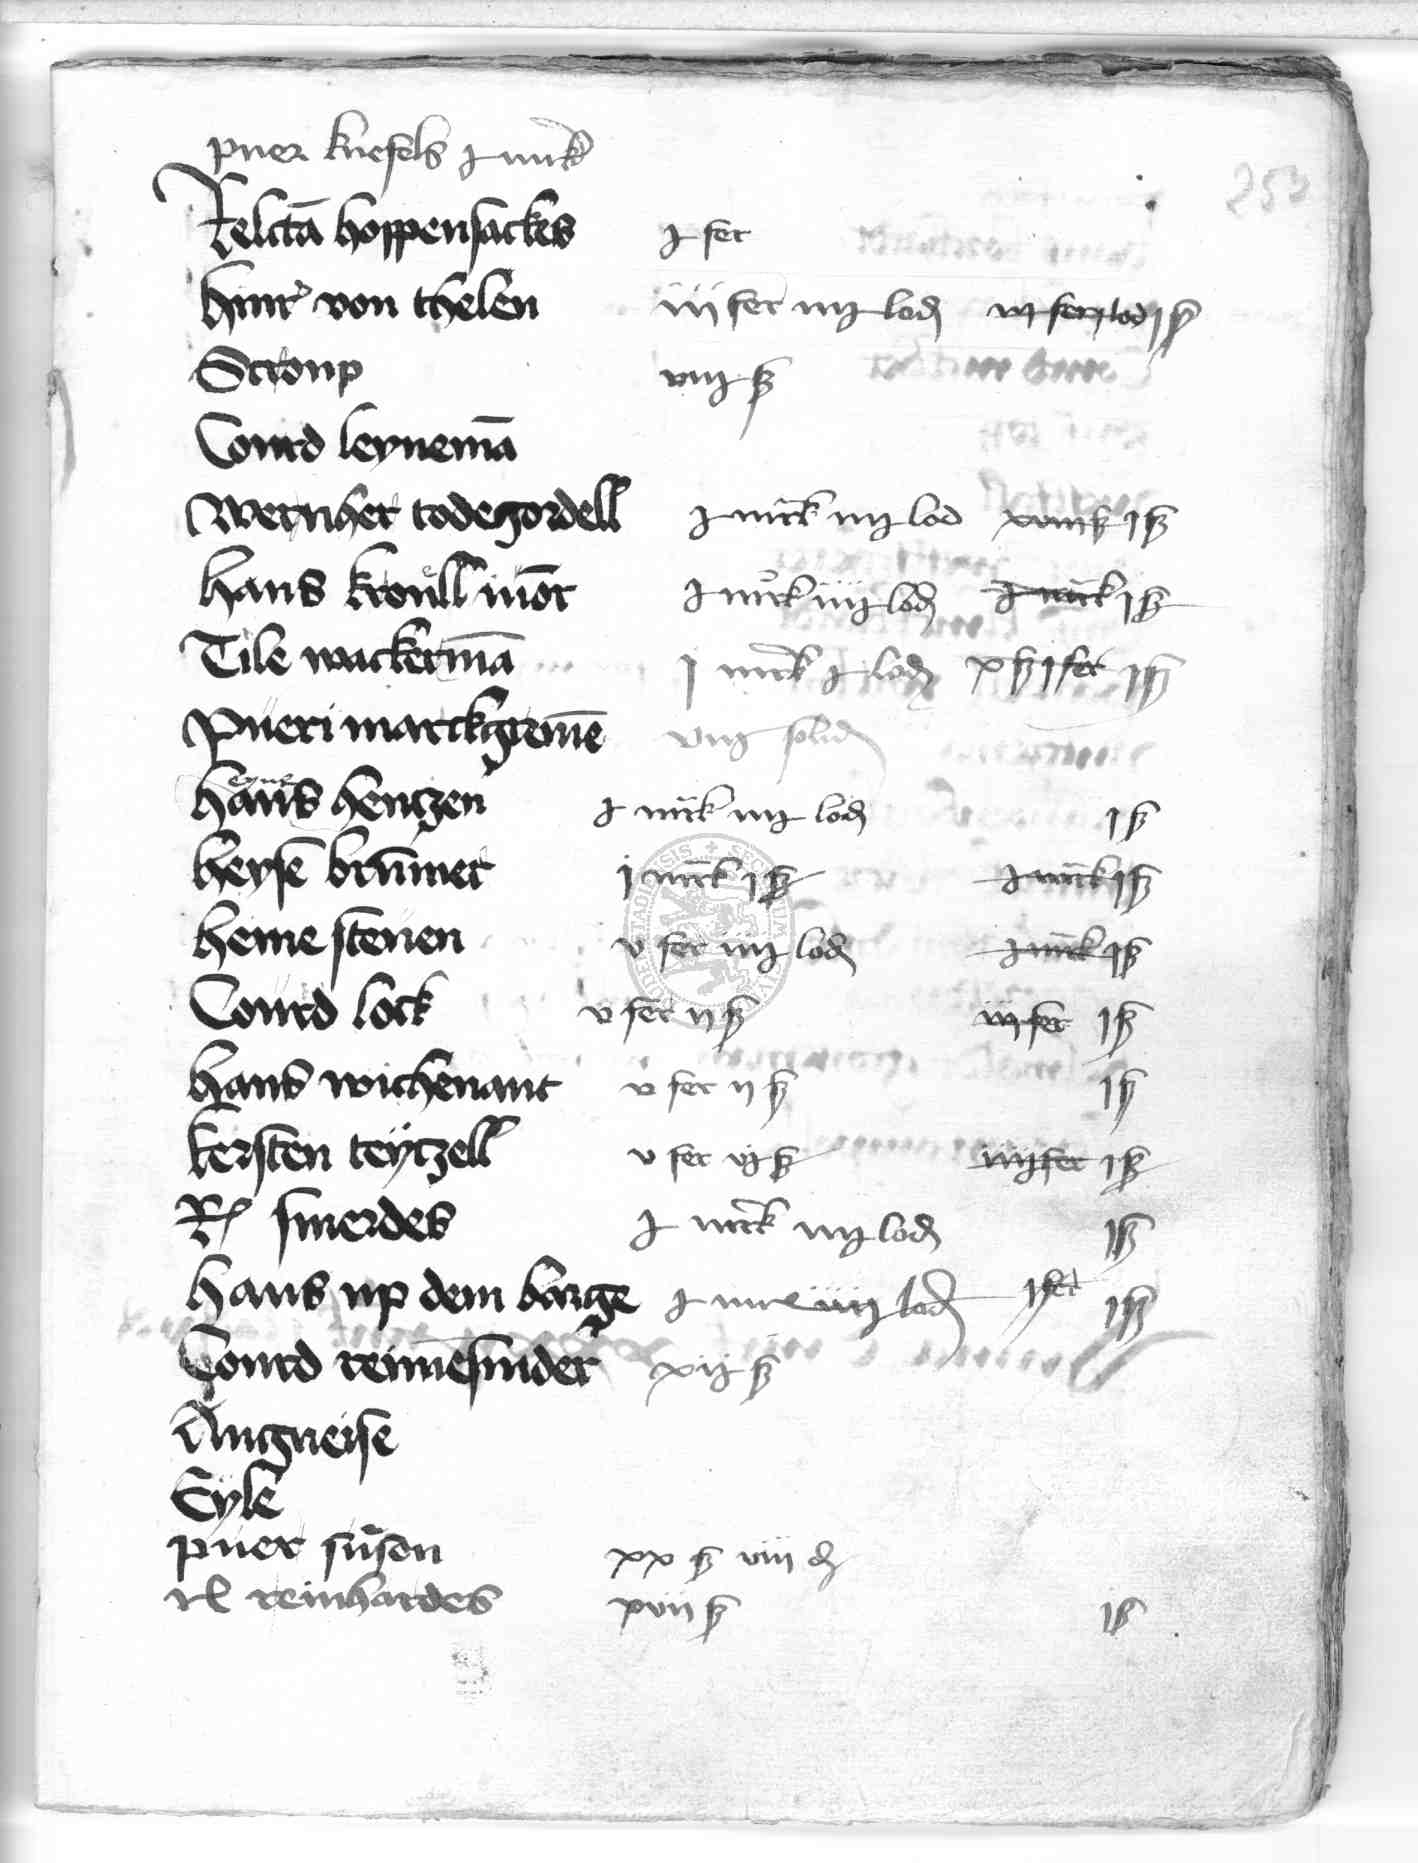 puer knefels j mrk
253
Relictā hoppensackes j fer
hinr von thelen iij fer iiij lod vj fer j lod j ß
Scroup viij ß
Conrd leynemā
Wernher todegordell j mrck iiij lod xviij ß j ß
Hans krouͤll mōr j mrck iiij lod j mrck j ß
Tile wackermā j mrck j lod x ß j fer j ß
Pueri marckgreuē viij solid
heyne
hans hentzen j mrk iiij lod j ß
heysē brūmer j mrck j ß j mrck j ß
heine stenen v fer iiij lod j mrck j ß
Conrd lock v fer ij ß iij fer j ß
hans wichenant v fer ij ß j ß
kersten teytzell v fer vj ß iiij fer j ß
Rl smerdes j mrck iiij lod j ß
Hans up dem barge j mr iiij lod j fer j ß
Conrd reimesnider xij ß
Angneise
Eyle
puer suͤson xx ß viii d
rl reinhardes xvii ß j ß